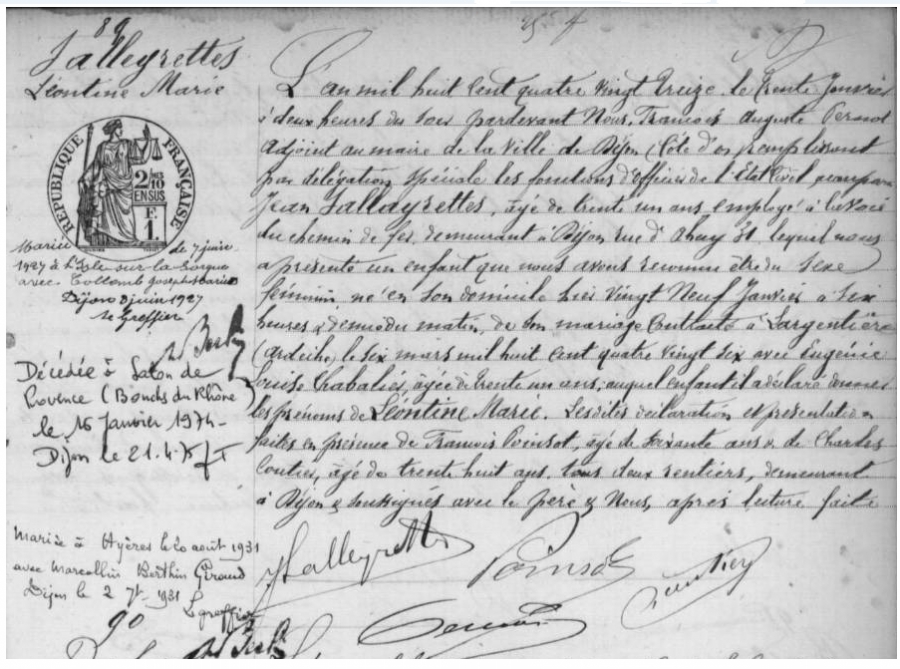 89
Lalleyrettes
Léontine Marie
RÉPUBLIQUE FRANÇAISE
2/10
EN SUS
F.
1
Mariée le 7 juin
1927 à l'Isle-sur-la-Sorgue
avec Collomb Joseph Marie
Dijon 8 juin 1927
le Greffier
Décédée à Salon de
Provence (Bouches du Rhône)
le 16 Janvier 1974-
Dijon le 21.4.75
Mariée à Hyères le 20 août 1931
avec Marcellin Berthin Giraud
Dijon le 2 7bre 1931
Le greffier
90
L'an mil huit cent quatre vingt treize le trente Janvier
à deux heures du soir pardevant Nous, François Auguste Pernot
adjoint au maire de la Ville de Dijon (Côte d'or) remplissant
par délégation spéciale les fonctions d'officier de l'Etat Civil, a comparu
Jean Lallayrettes, âgé de trente un ans employé à la voie
du chemin de fer, demeurant à Dijon rue d'Ahuy 31, lequel nous
a présenté un enfant que nous avons reconnu être du sexe
féminin, né en son domicile hier vingt Neuf Janvier à six
heures & demie du matin, de son mariage contracté à Largentière
(Ardèche) le six mars mil huit cent quatre vingt six avec Eugénie
Louise Chabalier, âgée de trente un ans; auquel enfant il a déclaré donner
les prénoms de Léontine Marie. Lesdites déclaration et présentation
faites en présence de François Poinsot, âgé de soixante ans & de Charles
Coutier, âgé de trente huit ans, tous deux rentiers, demeurant
à Dijon & soussignés avec le père & Nous, après lecture faite
JLalleyrettes
Poinsot
Pernot